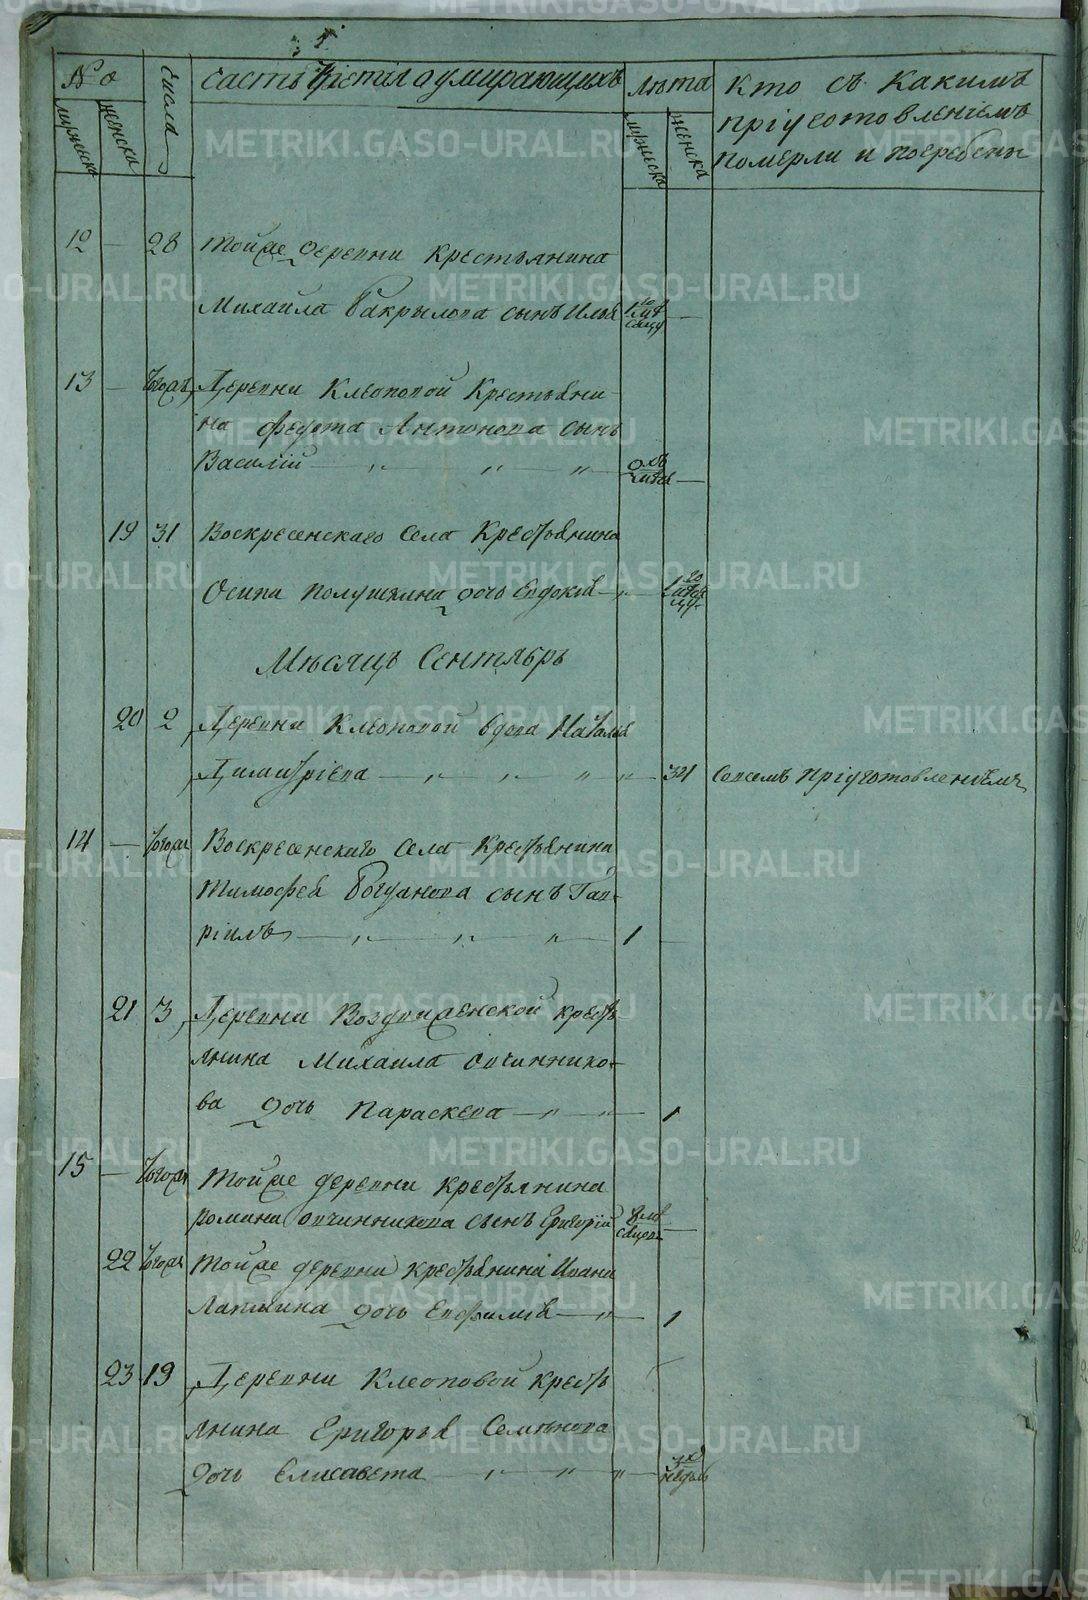 №о числа часть третія о умирающихъ лѣта кто съ какимъ
мужеска женска мужеска женска пріуготовленіемъ
померли и погребены
12 — 28 Тойже деревни крестьянина
Михаила сынъ Илья
13 — Тогожъ Деревни Клеоповой Крестьяни-
на Федота Антонова сынъ
Василій
19 31 Воскресенскаго села Крестьянина
Осипа дочь Евдокія
Мѣсяцъ Сентябрь
20 2 Деревни Клеоповой вдова Наталья
Димитріева 34 Совсемъ пріуготовленіемъ
14 — Тогожъ Воскресенскаго села Крестьянина
Тимофея Богданова сынъ Гав-
ріилъ 1 —
21 3 Деревни Воздвиженской крестъ
янина Михаила Овчиннико-
ва дочь Параскева 1
15 — Тогожъ Тойже деревни крестьянина
Романа Овчинникова сынъ Григорій
22 Тогожъ Тойже деревни крестьянина Ивана
Лапшина дочь Евфимія 1
23 19 Деревни Клеоповой кресть
янина Григорья Семенова
дочь Елисавета
METRIKI.GASO-URAL.RU